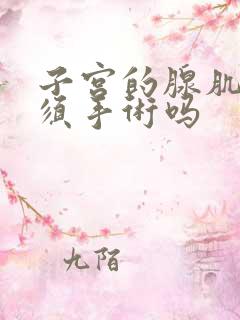 子宫的腺肌
须手术吗
九陌